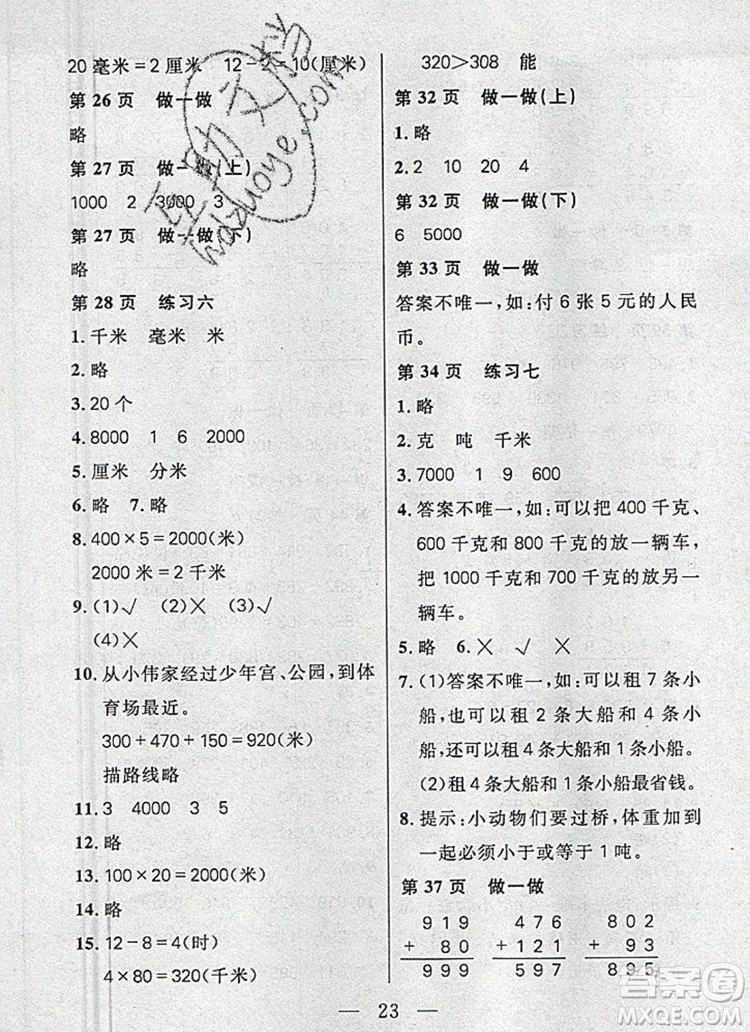 20 毫米=2 厘米　12-2=10(厘米)
第 26 页　做一做
略
第 27 页　做一做(上)
1000　2　3000　3
第 27 页　做一做(下)
略
第 28 页　练习六
1. 千米　毫米　米
2. 略
3. 20 个
4. 8000　1　6　2000
5. 厘米　分米
6. 略　7. 略
8. 400×5=2000(米)
2000 米=2 千米
9. (1)√　(2)×　(3)√
(4)×
10. 从小伟家经过少年宫、公园,到体
育场最近。
300+470+150=920(米)
描路线略
11. 3　4000　3　5
12. 略
13. 100×20=2000(米)
14. 略
15. 12-8=4(时)
4×80=320(千米)
320>308　能
第 32 页　做一做(上)
1. 略
2. 2　10　20　4
第 32 页　做一做(下)
6　5000
第 33 页　做一做
答案不唯一,如:付 6 张 5 元的人民
币。
第 34 页　练习七
1. 略
2. 克　吨　千米
3. 7000　1　9　600
4. 答案不唯一,如:可以把 400 千克、
600 千克和 800 千克的放一辆车,
把 1000 千克和 700 千克的放另一
辆车。
5. 略　6. ×　√　×
7. (1)答案不唯一,如:可以租 7 条小
船,也可以租 2 条大船和 4 条小
船,还可以租 4 条大船和 1 条小船。
(2)租 4 条大船和 1 条小船最省钱。
8. 提示:小动物们要过桥,体重加到
一起必须小于或等于 1 吨。
第 37 页　做一做
919　476　802
+ 80　+121　+ 93
999　597　895
— 23 —
互助文档
hdzuoye.com
答案圈
MXQE.COM